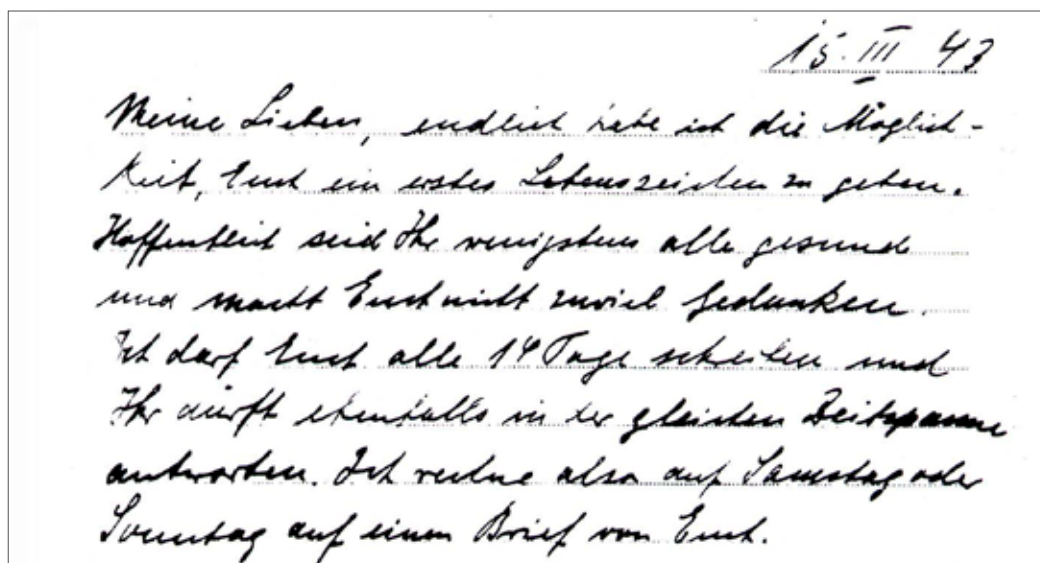 15. III 43
Meine Lieben, endlich habe ich die Möglich-
keit, Euch ein erstes Lebenszeichen zu geben.
Hoffentlich seid Ihr wenigstens alle gesund
und macht Euch nicht zuviel Gedanken.
Ich darf Euch alle 14 Tage schreiben und
Ihr dürft ebenfalls in der gleichen Zeitspanne
antworten. Ich rechne also auf Samstag oder
Sonntag auf einen Brief von Euch.